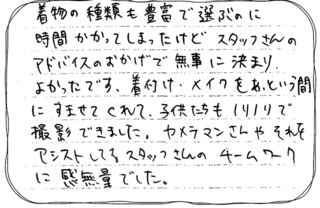 着物の種類も豊富で選ぶのに
時間かかってしまったけど スタッフさんの
アドバイスのおかげで無事に決まり、
よかったです、着付け・メイクをあっという間
にすませてくれて、子供たちもノリノリで
撮影できました。カメラマンさんや それを
アシストしてるスタッフさんの チームワーク
に感無量でした。